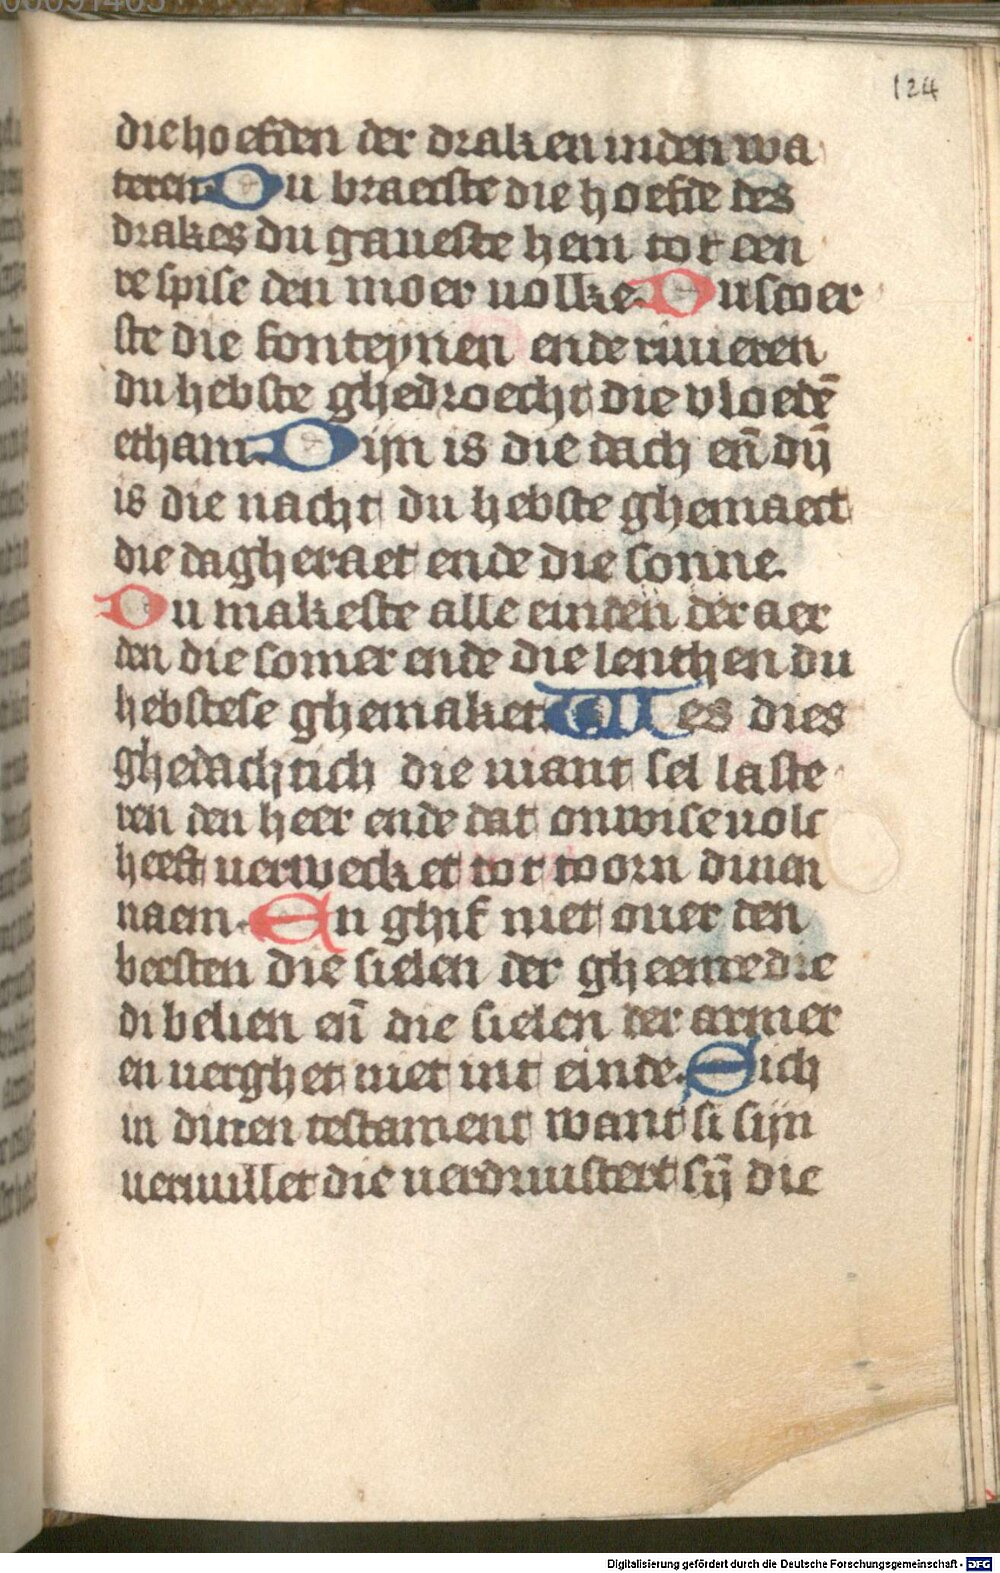 00091405
124
die hoefden der draken in den wa
teren. Du braecste die hoefde des
drakes du gaueste hem tot een
re spise den moer uolke. Du stoer
ste die fonteynen ende riuieren
du hebste ghedroecht die vloedē
etham. Dijn is die dach eñ dij̄
is die nacht du hebste ghemaect
die dagheraet ende die sonne.
Du makeste alle einden der aer
den die somer ende die lenthen du
hebstese ghemaket. Wes dies
ghedachtich die uiant sel laste
ren den heer ende dat onwise uolc
heeft uerwecket tot toorn dinen
naem. En ghif niet ouer den
beesten die sielen der gheenre die
di belien eñ die sielen der armer
en uerghet niet int einde. Sich
in dinen testament want si sijn
ueruullet die uerduustert sij̄ die
Digitalisierung gefördert durch die Deutsche Forschungsgemeinschaft - DFG